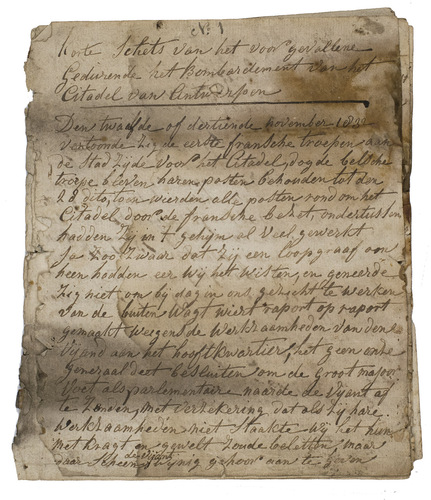 No 1
Korte Schets van het voor gevallene
Gedurende het Bombardement van het
Citadel van Antwerpen
Den twaalfde of dertiende november 183
vertoonde zig de eerste fransche troepen aan
de Stad Zyde voor het Citadel, dog de belsche
troepe bleven haren posten behouden tot den
dito, toen werden alle posten rondom het
Citadel door de fransche bezet ondertussen
hadden zy in t gehym al veel gewerkt
Ja zoo zwaar dat zy een loopgraaf aan
heen hadden eer wy het wisten, en geneerde
zig niet om by dagen ons gezicht te werken
van de buiten Wagt wiert raport op raport
gemaakt weegens de Werkzaamheden van den
Vyand aan het hooftkwartier, het geen onse
generaal deet besluiten om de Groot majoor
als parlementaire naar de Vyant af
te Zenden, met verzekering dat als zy hare
werkzaamheden niet Staakte wy het hun
met kragt en gewelt zoude beletten, maar
daar Scheen de vyant wynig gehoor aan te geven